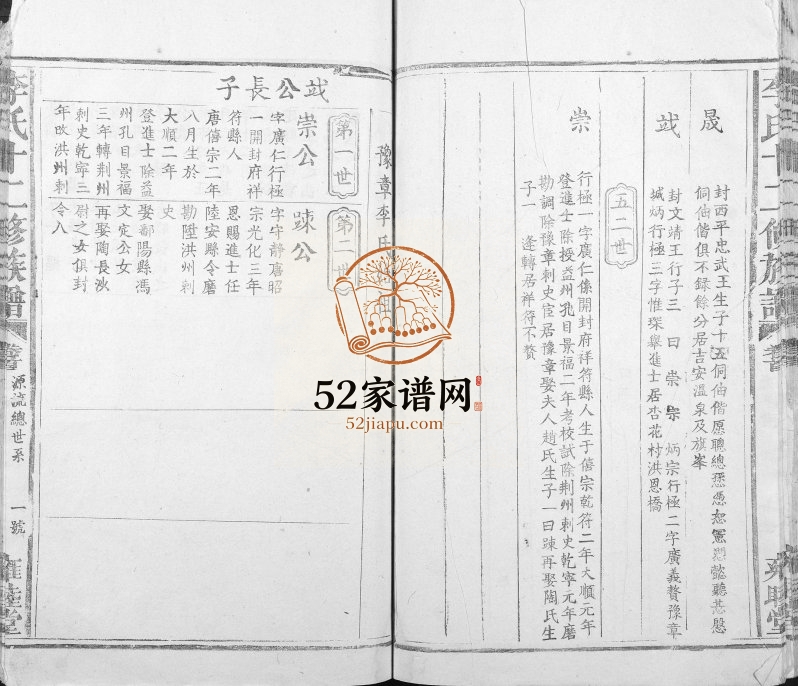 李氏十二修族譜
晟
封西平忠武王生子十五侗伷偕愿聰總愻憑恕憲愬懿聽惎慇
侗伷偕俱不錄餘分居吉安溫泉及旗峯
㦸
封文靖王行子三曰崇崈炳宗行極二字廣義贅豫章
城炳行極三字惟琛舉進士居杏花村洪恩橋
五二世
崇
行極一字廣仁係開封府祥符縣人生于僖宗乾符二年大順元年
登進士除授益州孔目景福二年考校試除荆州剌史乾寧元年磨
勘調除豫章剌史宦居豫章娶夫人趙氏生子一曰踈再娶陶氏生
子一 逢轉居祥符不贅
豫章李氏
㦸公長子
第一世
崇公
字廣仁行極
一開封府祥
符縣人
唐僖宗二年
八月生於
大順二年
登進士除益
州孔目景福
三年轉荆州
剌史乾寧三
年改洪州剌
第二世
踈公
字守靜唐昭
宗光化三年
恩賜進士任
陸安縣令磨
勘陞洪州剌
史
娶鄱陽縣馮
文定公女
再娶陶長沙
尉之女俱封
令人
源流總世系
一號
52家谱网
52jiapu.com